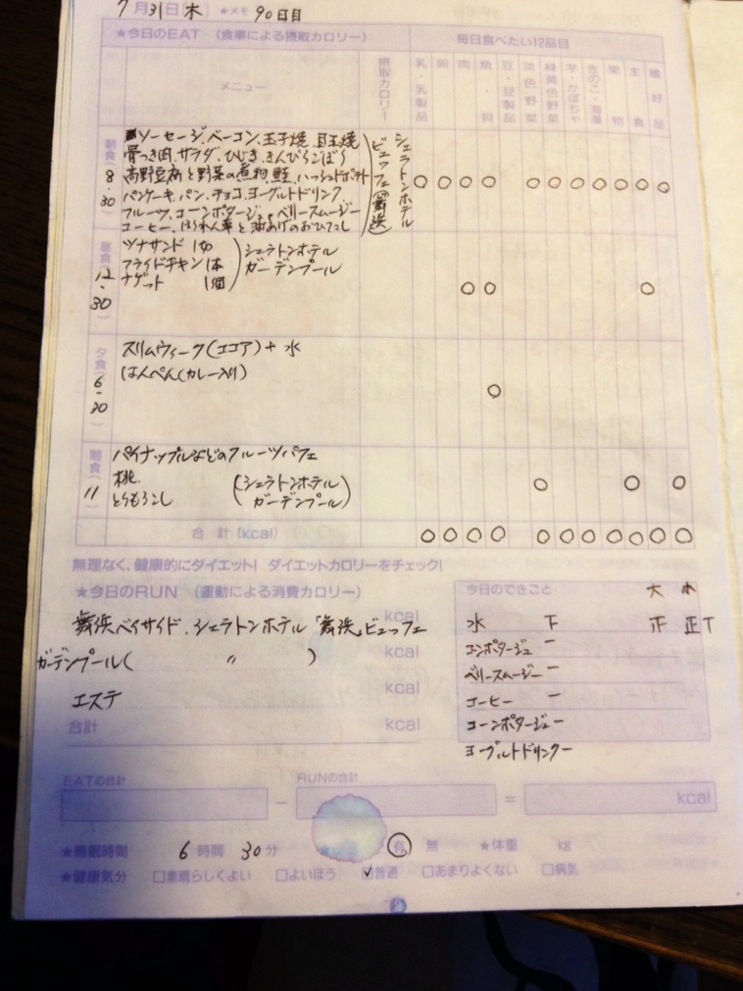 7月31日(木) ★メモ 90日目
★今日のEAT (食事による摂取カロリー) 毎日食べたい12品目
メニュー 摂取カロリー 乳・乳製品 卵 肉 魚・貝 豆・豆製品 淡色野菜 緑黄色野菜 芋・かぼちゃ きのこ・海藻 果物 主食 嗜好品
朝食(8・30)
ソーセージ、ベーコン、玉子焼、目玉焼
骨つき肉、サラダ、ひじき、きんぴらごぼう
高野豆腐と野菜の煮物、鮭、ハッシュドポテト
パンケーキ、パン、チョコ、ヨーグルトドリンク
フルーツ、コーンポタージュ、ベリースムージー
コーヒー、ほうれん草と油あげのおひたし
シェラトンホテル
ビュッフェ(舞浜)
昼食(12・30)
ツナサンド 1切
フライドチキン 1本
ナゲット 1個
シェラトンホテル
ガーデンプール
夕食(6・30)
スリムウィーク(ココア)+水
はんぺん(カレー入り)
間食(11)
パイナップルなどのフルーツパフェ
桃
とうもろこし
(シェラトンホテル
ガーデンプール)
合計(kcal)
無理なく、健康的にダイエット! ダイエットカロリーをチェック!
★今日のRUN (運動による消費カロリー)
kcal
舞浜ベイサイド、シェラトンホテル「舞浜」ビュッフェ
kcal
ガーデンプール( 〃 )
kcal
エステ
合計 kcal
今日のできごと 大 小
水 下 正 正T
コーンポタージュ 一
ベリースムージー 一
コーヒー 一
コーンポタージュ 一
ヨーグルトドリンク 一
EATの合計 − RUNの合計 = kcal
★睡眠時間 6時間30分 有 無 ★体重 kg
★健康気分 □素晴らしくよい □よいほう ☑普通 □あまりよくない □病気